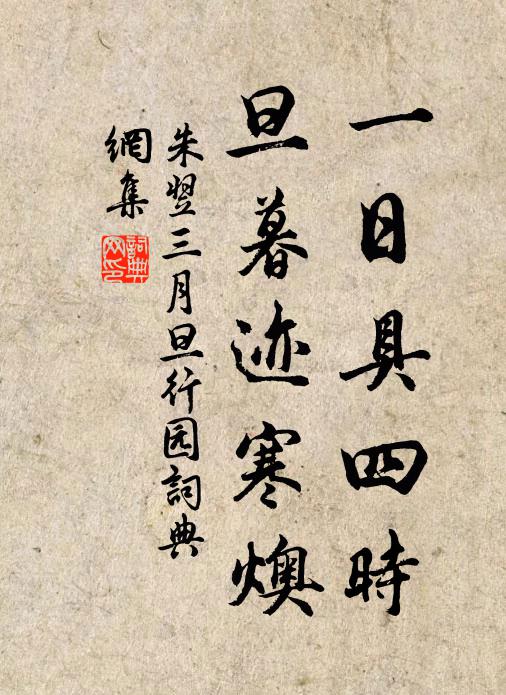 一日具四時
旦暮迹寒燠
朱翌三月旦行园詞典
網集
詞典
网印